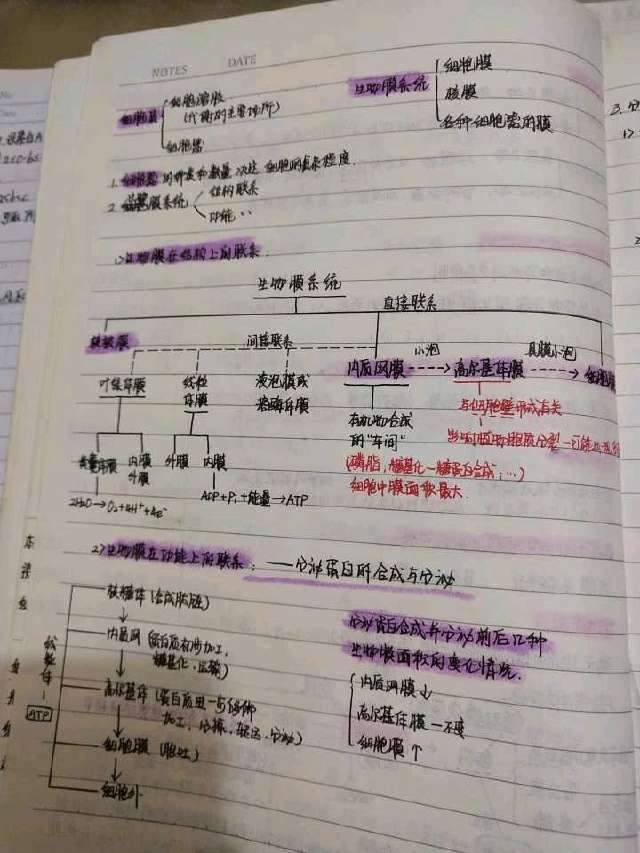 NOTES DATE
细胞质
细胞溶胶
(代谢的主要场所)
细胞器
生物膜系统
细胞膜
核膜
各种细胞器的膜
1. 细胞器的种类和数量决定细胞的复杂程度.
2. 生物膜系统
结构联系
功能 ..
1) 生物膜在结构上的联系.
生物膜系统
直接联系
核被膜
间接联系
叶绿体膜
线粒体膜
液泡膜或
溶酶体膜
内质网膜
小泡
高尔基体膜
具膜小泡
细胞膜
有机物合成
的"车间"
(磷脂,糖基化—糖蛋白合成,...)
细胞中膜面积最大
与细胞壁形成有关
类囊体膜
内膜
外膜
外膜
内膜
2H₂O→O₂+4H⁺+4e⁻
ADP+Pi+能量→ATP
2) 生物膜在功能上的联系: ——分泌蛋白的合成与分泌
核糖体 (合成肽链)
内质网 (蛋白质初步加工,
糖基化,运输)
高尔基体 (蛋白质进一步修饰
加工,分拣,转运,分泌)
细胞膜 (胞吐)
细胞外
线粒体
ATP
分泌蛋白合成并分泌前后几种
生物膜面积的变化情况.
内质网膜↓
高尔基体膜—不变
细胞膜↑